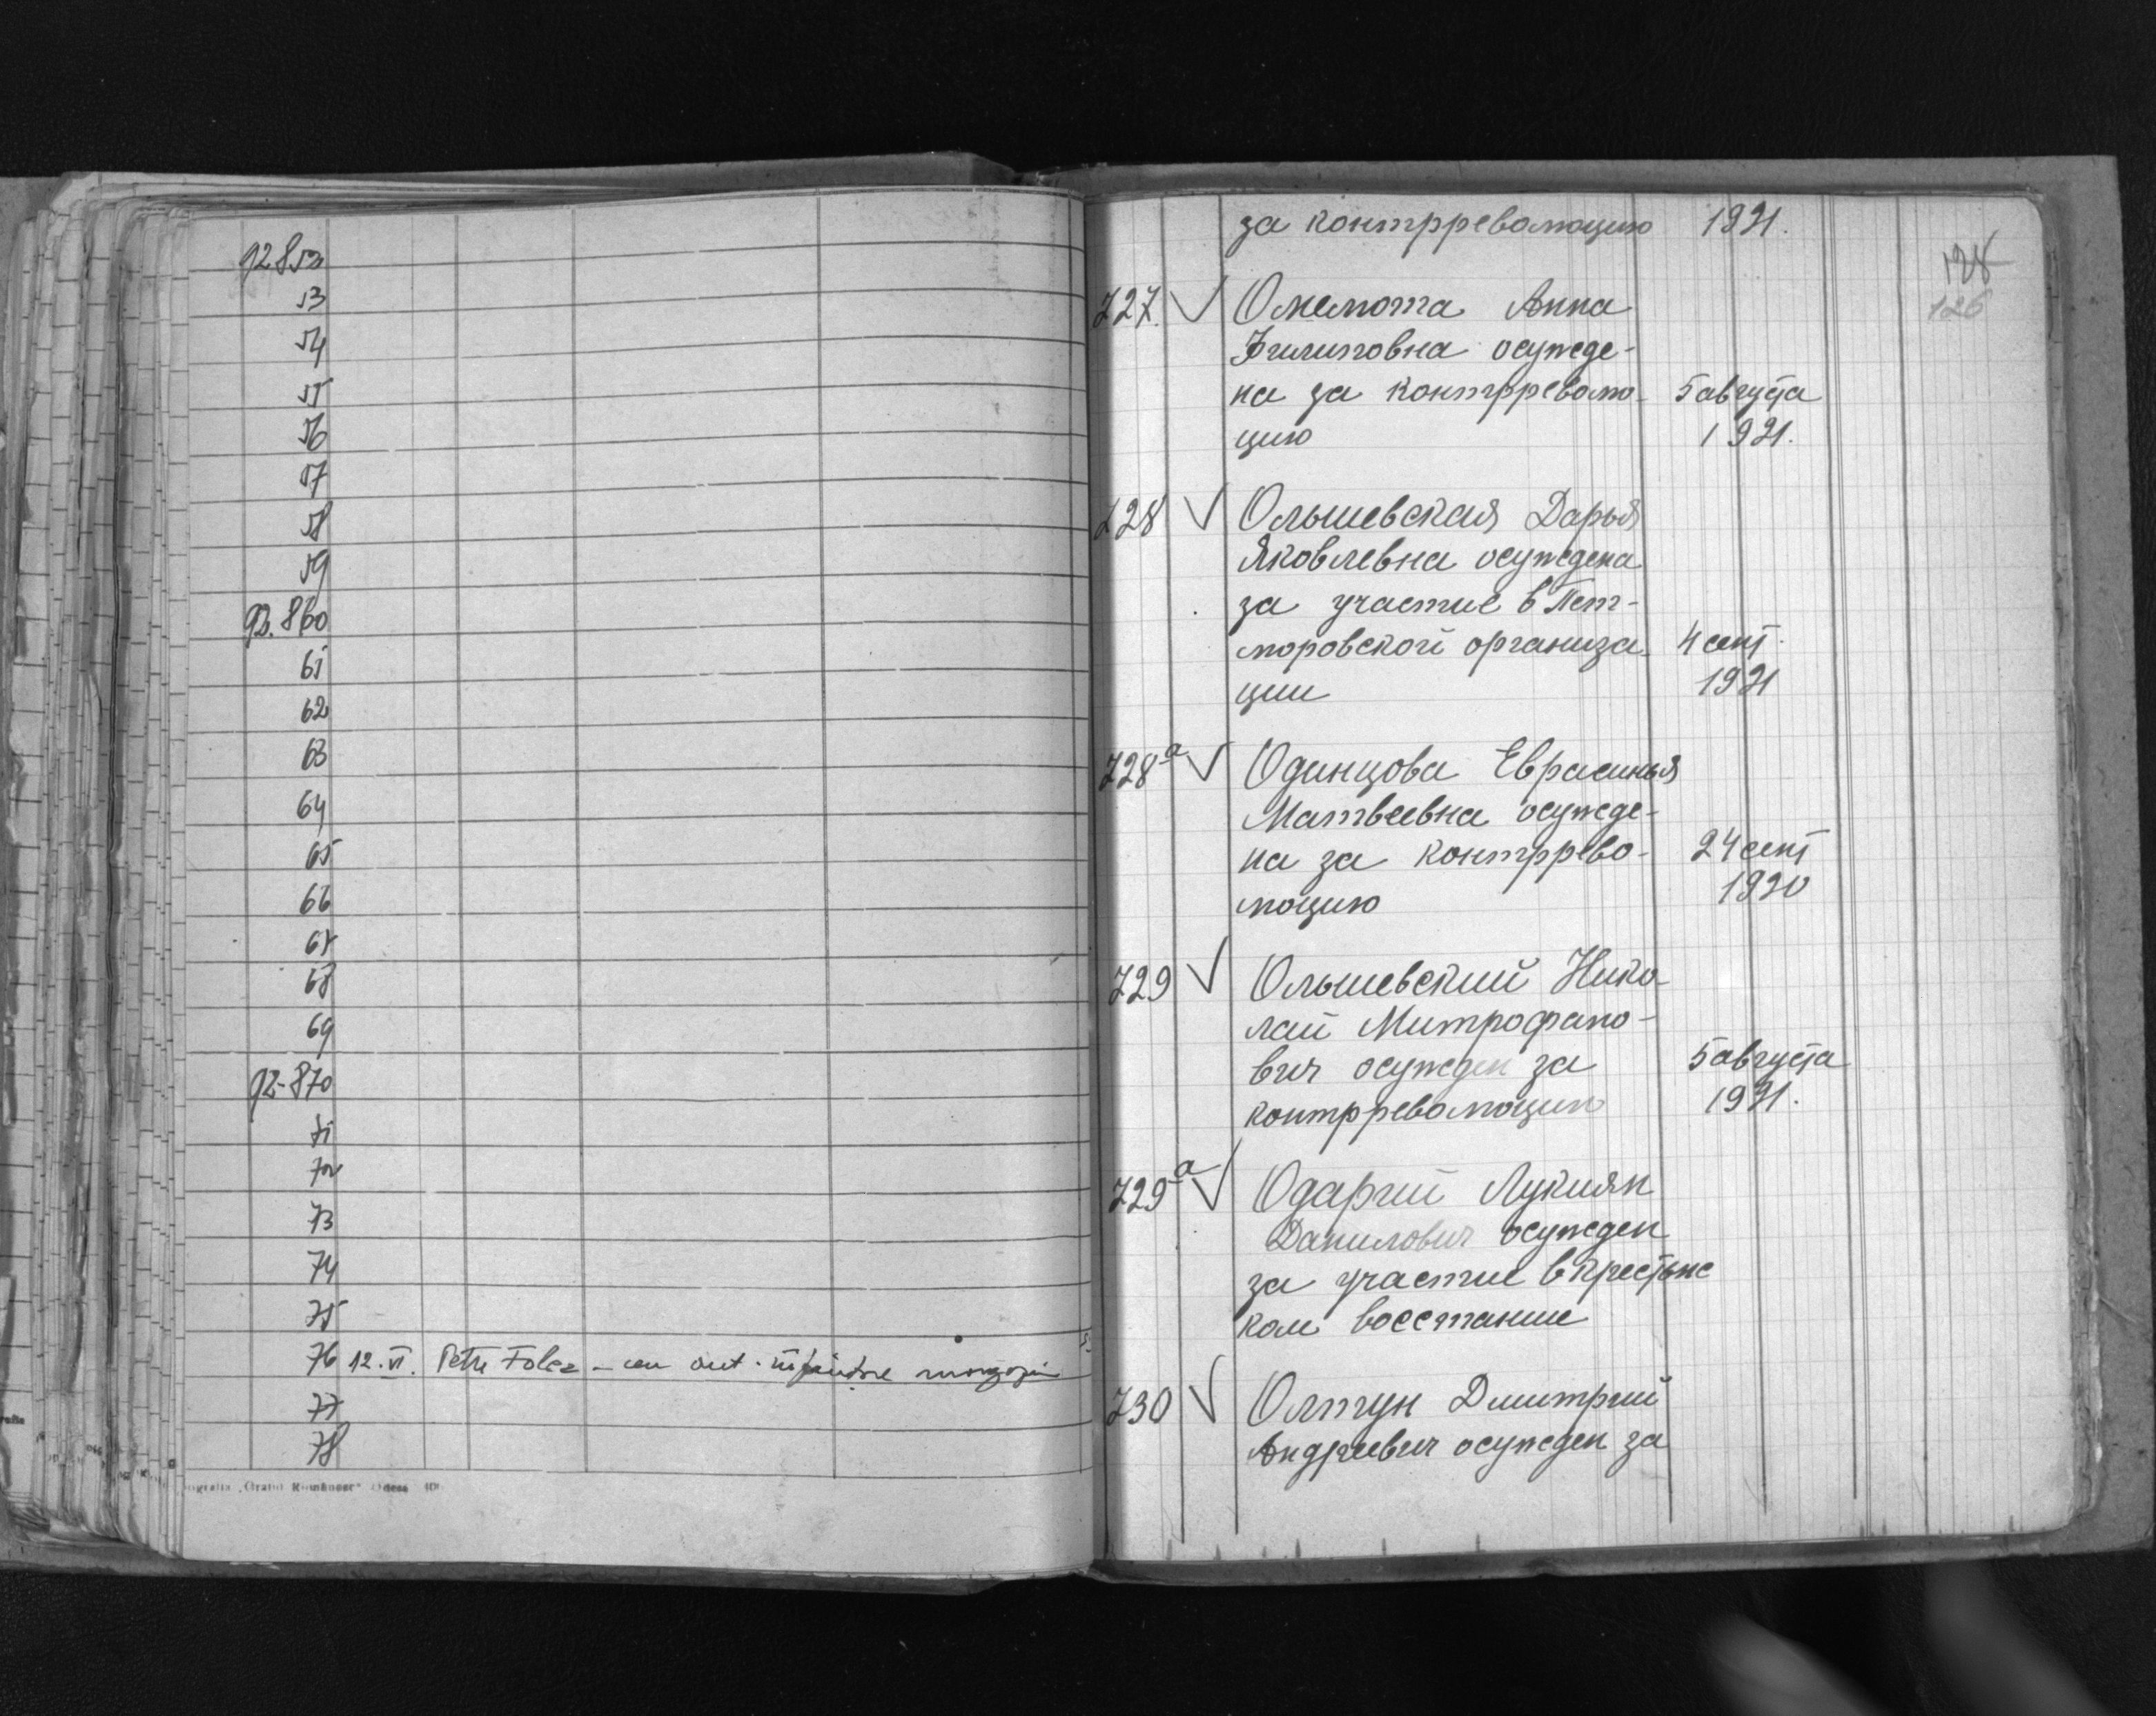 92852
53
54
55
56
57
58
59
92.860
61
62
63
64
65
66
67
68
69
92-870
71
72
73
74
75
76 12.VI. Petre
77
78
Odesa
за контрреволюцию 1921.
128
126
727. Омелюта Анна
Филиповна осужде-
на за контрреволю- 5 августа
цию 1921.
728 Ольшевская Дарья
Яковлевна осуждена
за участие в Пет-
люровской организа- 4 сент.
ции 1921
728а Одинцова Еврасинья
Матвеевна осужде-
на за контррево- 24 сент
люцию 1920
729 Ольшевский Нико-
лай Митрофано-
вич осужден за 5 августа
контрреволюцию 1921.
729а Одаргий Лукиян
Данилович осужден
за участие в крестьянс
ком восстание
730 Олтун Дмитрий
Андреевич осужден за